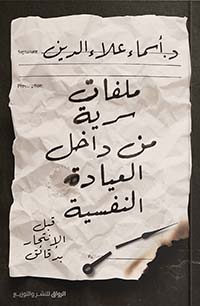 د. أسماء علاء الدين
ملفات
سرية
من داخل
العيادة
النفسية
قبل
الانتحار
بدقائق
الرواق للنشر والتوزيع